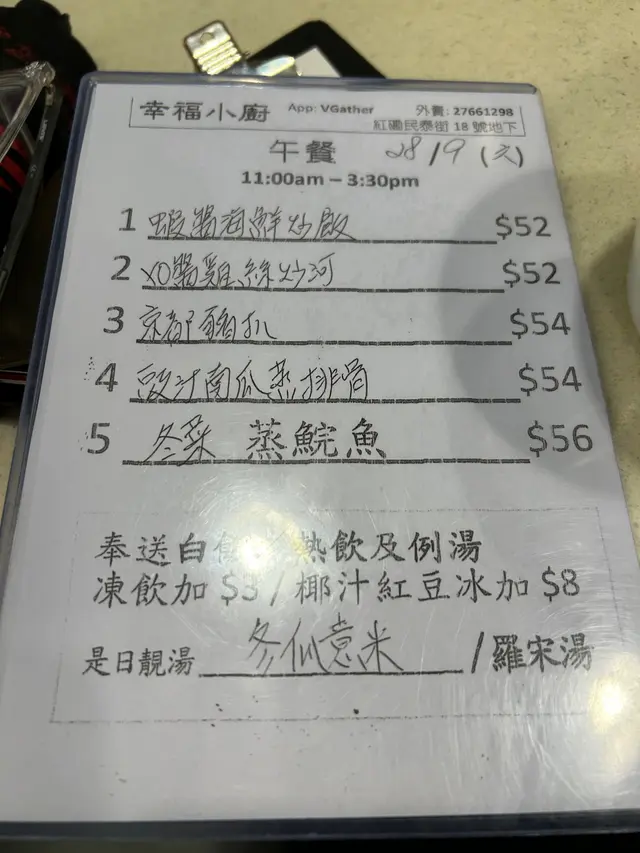 幸福小廚 App: VGather 外賣: 27661298
紅磡民泰街 18 號地下
午餐 28/9 (天)
11:00am – 3:30pm
1 蝦醬海鮮炒飯 $52
2 XO醬雞絲炒河 $52
3 京都豬扒 $54
4 豉汁南瓜蒸排骨 $54
5 冬菜 蒸鯇魚 $56
奉送白 熱飲及例湯
凍飲加 $3 / 椰汁紅豆冰加 $8
是日靚湯 冬瓜薏米 / 羅宋湯